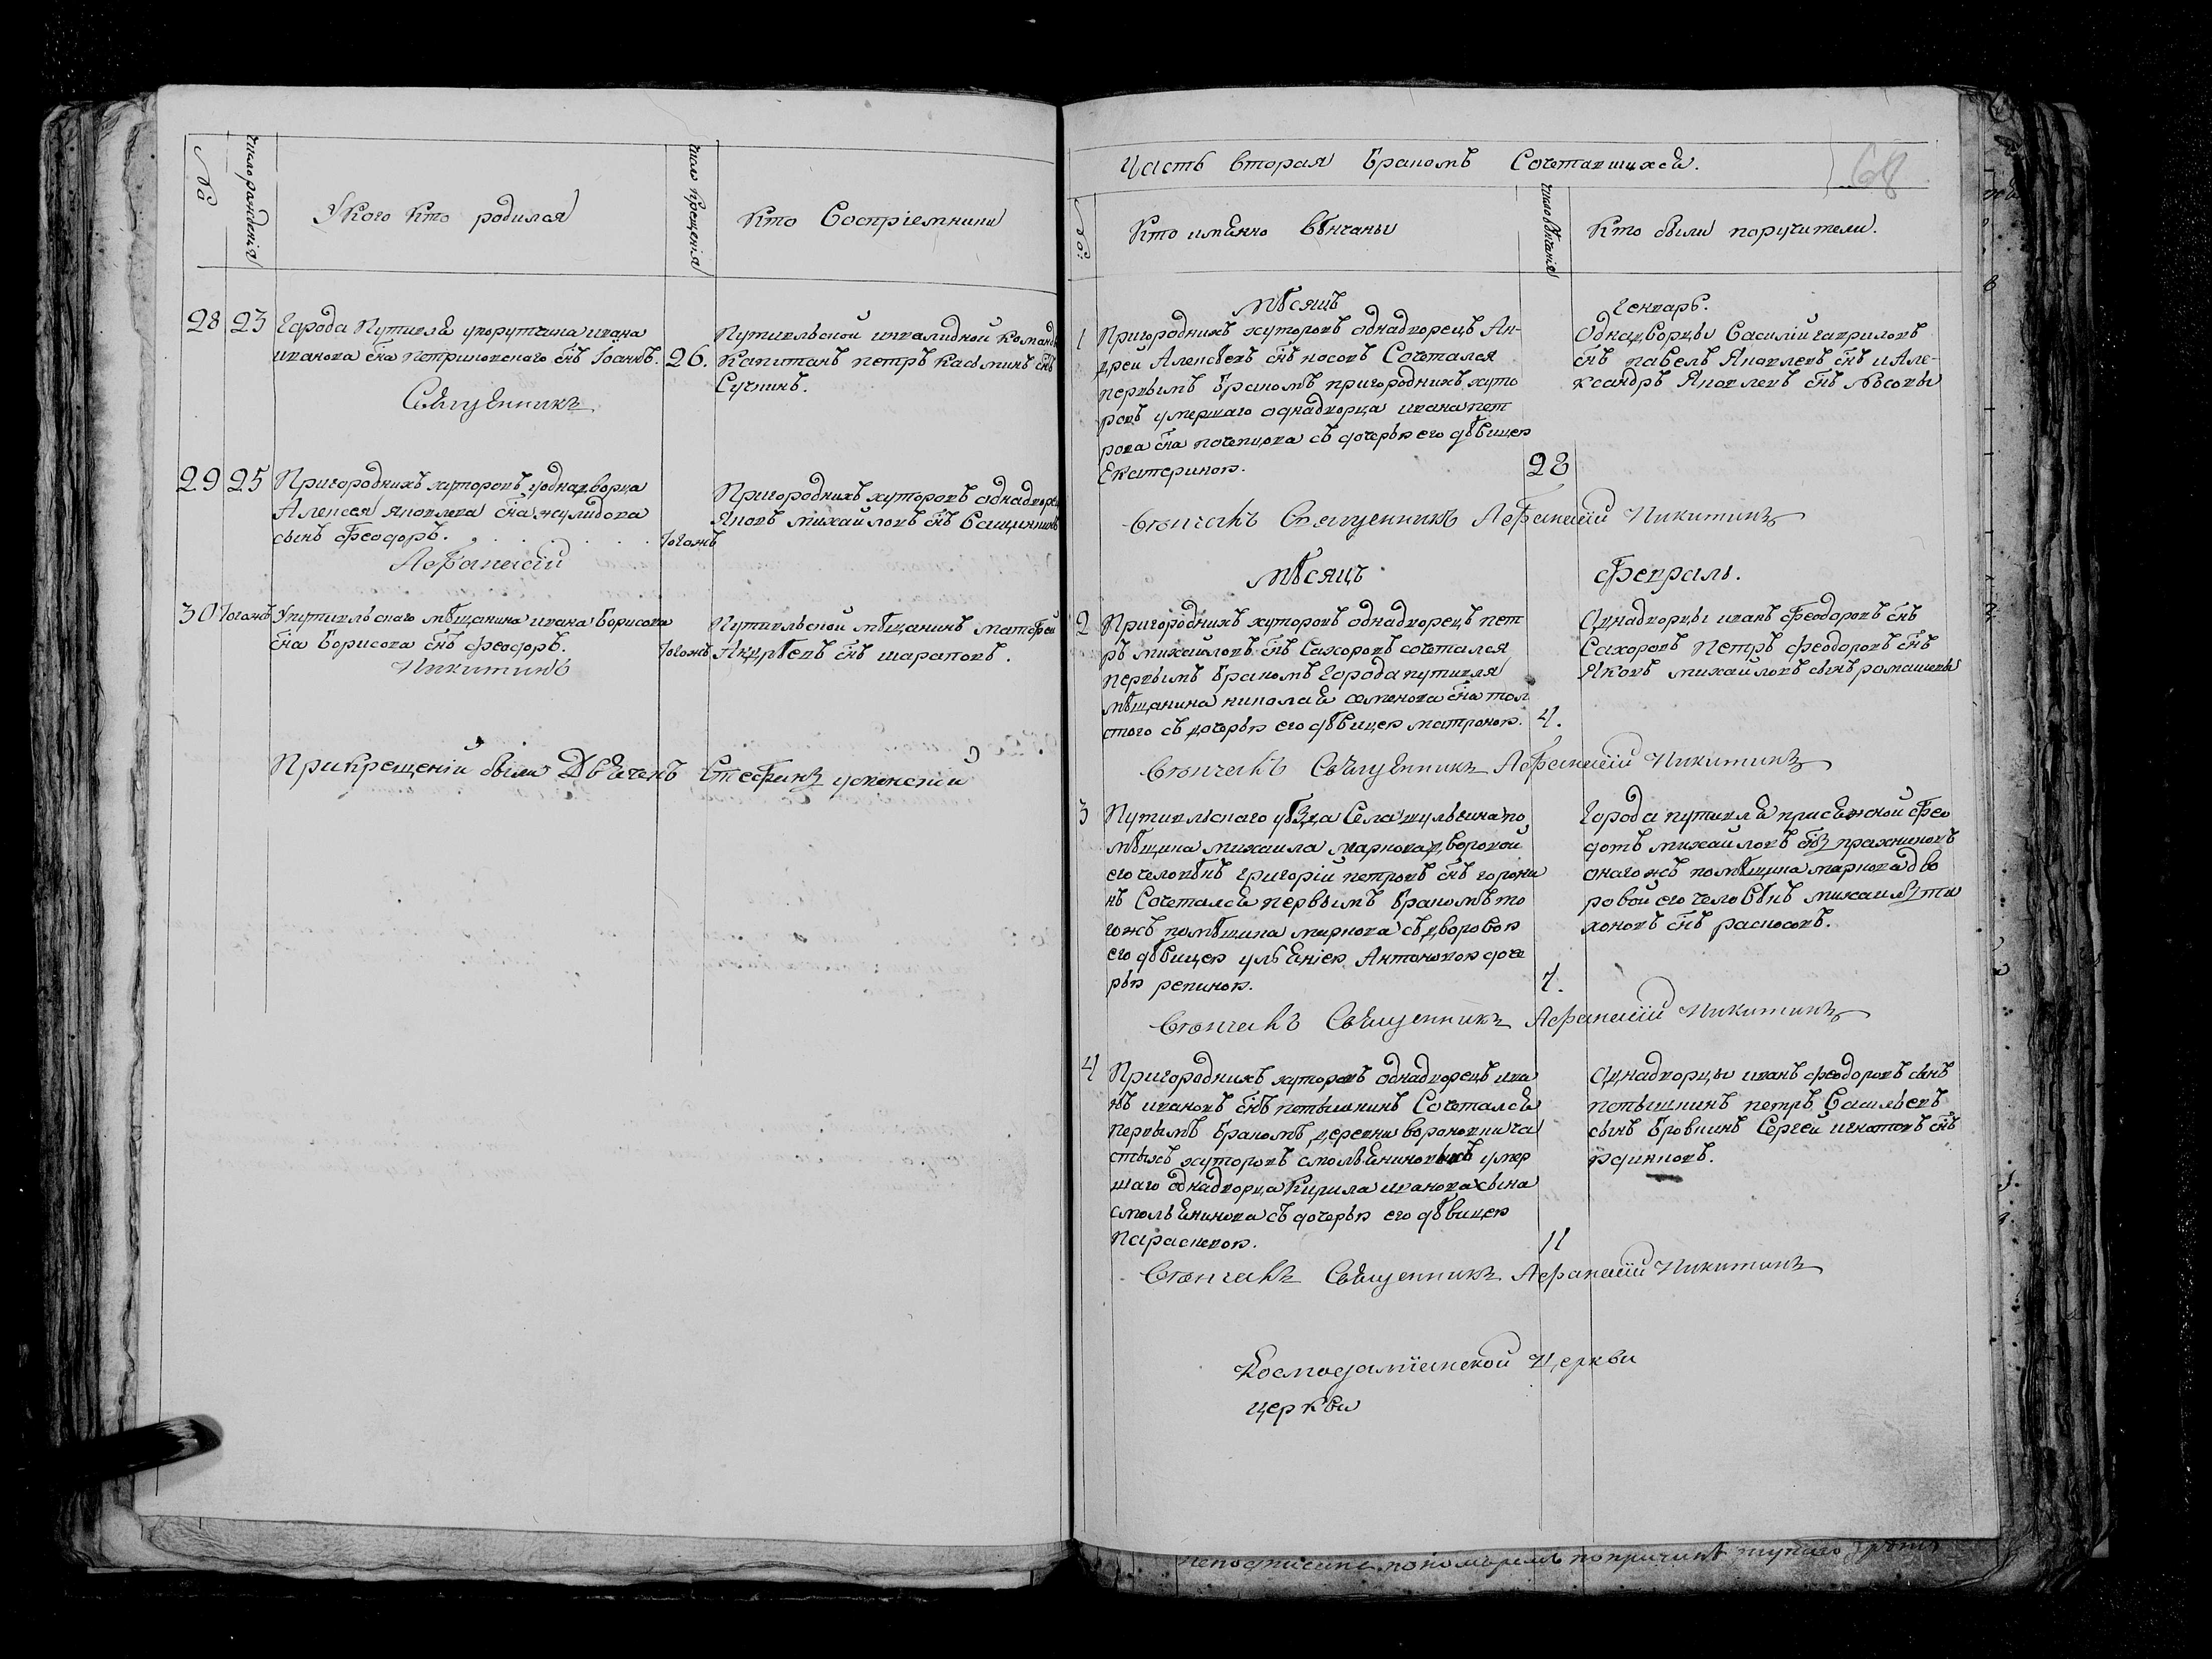 №
число рожденія
У кого кто родился
число крещенія
Кто Воспріемники
28 23 Города Путивля упоручика ивана
иванова сна петриновскаго снъ Іоаннъ. 26.
Путивльской инвалидной команды
Капитанъ петръ касминъ снъ
Сучкинъ.
Священникъ
29 25 Пригороднихъ хуторовъ уоднадворца
Алексея яковлева сна жулидова
сынъ Феодоръ. Тогожъ
Пригороднихъ хуторовъ однадворецъ
Яковъ михайловъ снъ
Афанасій
30 Тогожъ Упутивльскаго мѣщанина ивана Борисова
сна Борисова снъ феодоръ. Тогожъ
Путивльской мѣщанинъ матфей
Андрѣевъ снъ шараповъ.
Никитинъ
Прикрещеніи былъ Дьячекъ Стефанъ успенскій
Часть вторая бракомъ Сочетавшихся.
68
№:
Кто имянно вѣнчаны
число вѣнчанія
Кто были поручители.
мѣсяцъ Генварь.
1 Пригороднихъ хуторовъ однадворецъ Ан-
дрей Алексѣевъ снъ носовъ Сочетался
первымъ бракомъ пригороднихъ хуто
ровъ умершаго однадворца ивана пет
рова сна почепцова съ дочерью его дѣвицею
Екатериною. 28
Однадворцы Василій гавриловъ
снъ павелъ Яковлевъ снъ и Але-
ксандръ Яковлевъ снъ лѣсовы
Вѣнчалъ Священникъ Афанасій Никитинъ
мѣсяцъ Февраль.
2 Пригороднихъ хуторовъ однадворецъ пет
ръ михайловъ снъ Сахоровъ сочетался
первымъ бракомъ города путивля
мѣщанина николая семенова сна тол
стого съ дочерью его дѣвицею матроною. 4.
Однадворцы иванъ Феодоровъ снъ
Сахоровъ Петръ феодоровъ снъ
Яковъ михайловъ сынъ ромашовы
Вѣнчалъ Священникъ Афанасій Никитинъ
3 Путивльскаго уѣзда Села шульгина по
мѣщика михаила маркова дворовой
его человѣкъ григорій петровъ снъ горони
нъ Сочетался первымъ бракомъ то
гожъ помѣщика маркова съ дворовою
его дѣвицею ульяніею Антоновою доче
рью репиною. 7.
Города путивля присяжной Фео
дотъ михайловъ снъ пражниковъ
онагожъ помѣщика маркова дво
ровой его человѣкъ михаилъ ти
хоновъ снъ расносовъ.
Вѣнчалъ Священникъ Афанасій Никитинъ
4 Пригороднихъ хуторовъ однадворецъ ива
нъ ивановъ снъ потышкинъ Сочетался
первымъ бракомъ деревни вороновки ча
стыхъ хуторовъ смольяниновыхъ умер
шаго однадворца Кирила иванова сына
смольянинова съ дочерью его дѣвицею
Параскевою. 11
Однадворцы иванъ феодоровъ сынъ
потышкинъ петръ Васильевъ
сынъ бровкинъ Сергей игнатовъ снъ
Вѣнчалъ Священникъ Афанасій Никитинъ
Космодаміанской Церкви
церкви